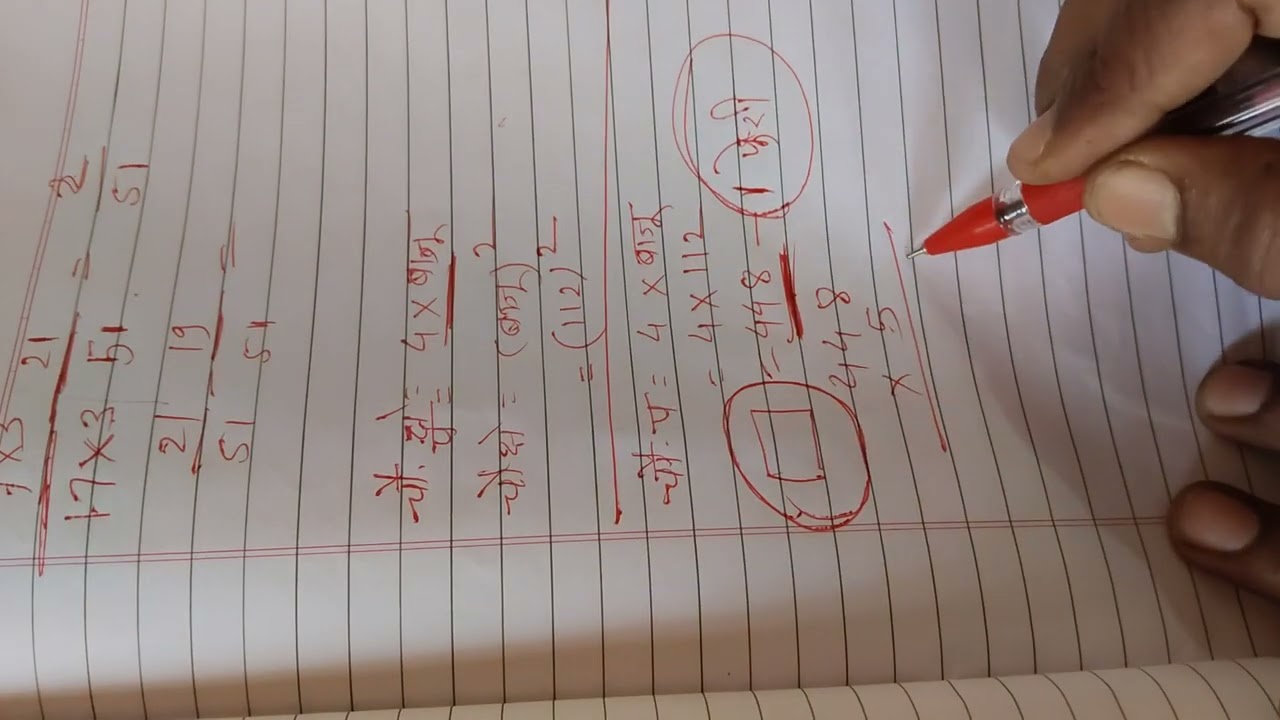 7 × 3 21
17 × 3 = 51 2
21 19 51
51 51 =
चौ. क्षे = 4 × बाजू
प =
चौ क्षे = (बाजू)²
= (112)²
चौ. प = 4 × बाजू
= 4 × 112
= 448 — 1 फेरी
448
× 5